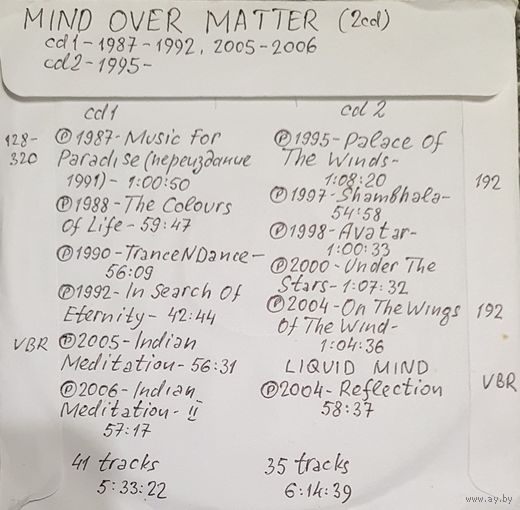 MIND OVER MATTER (2cd)
cd1-1987-1992, 2005-2006
cd2-1995-
cd1
128-
320
Ⓟ1987-Music For
Paradise (переиздание
1991)- 1:00:50
Ⓟ1988-The Colours
Of Life-59:47
Ⓟ1990-TranceNDance-
56:09
Ⓟ1992-In Search Of
Eternity-42:44
VBR
Ⓟ2005-Indian
Meditation-56:31
Ⓟ2006-Indian
Meditation-II
57:17
41 tracks
5:33:22
cd 2
Ⓟ1995-Palace Of
The Winds-
1:08:20
192
Ⓟ1997-Shambhala-
54:58
Ⓟ1998-Avatar-
1:00:33
Ⓟ2000-Under The
Stars-1:07:32
Ⓟ2004-On The Wings
Of The Wind-
1:04:36
192
LIQUID MIND
Ⓟ2004-Reflection
58:37
VBR
35 tracks
6:14:39
www.ay.by